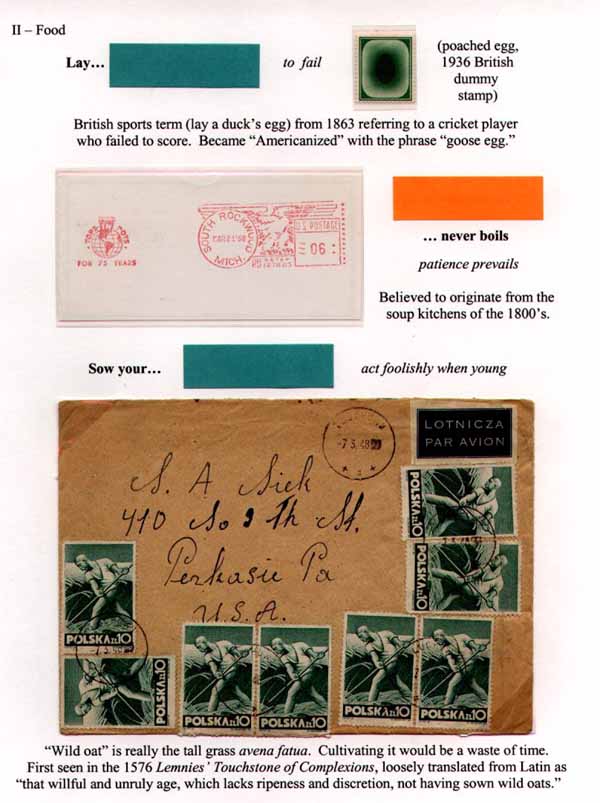 II – Food
Lay…
to fail
(poached egg,
1936 British
dummy
stamp)
British sports term (lay a duck's egg) from 1863 referring to a cricket player
who failed to score. Became “Americanized” with the phrase “goose egg.”
FOR 75 YEARS
SOUTH ROCKWOOD
MICH.
U.S. POSTAGE
06
… never boils
patience prevails
Believed to originate from the
soup kitchens of the 1800's.
Sow your…
act foolishly when young
LOTNICZA
PAR AVION
-7.3.48
S. A Sick
410 So 9 Th St.
Perkasie Pa
U.S.A.
POLSKA ZŁ 10
POLSKA ZŁ 10
POLSKA ZŁ 10
POLSKA ZŁ 10
POLSKA ZŁ 10
POLSKA ZŁ 10
POLSKA ZŁ 10
POLSKA ZŁ 10
“Wild oat” is really the tall grass avena fatua. Cultivating it would be a waste of time.
First seen in the 1576 Lemnies' Touchstone of Complexions, loosely translated from Latin as
“that willful and unruly age, which lacks ripeness and discretion, not having sown wild oats.”